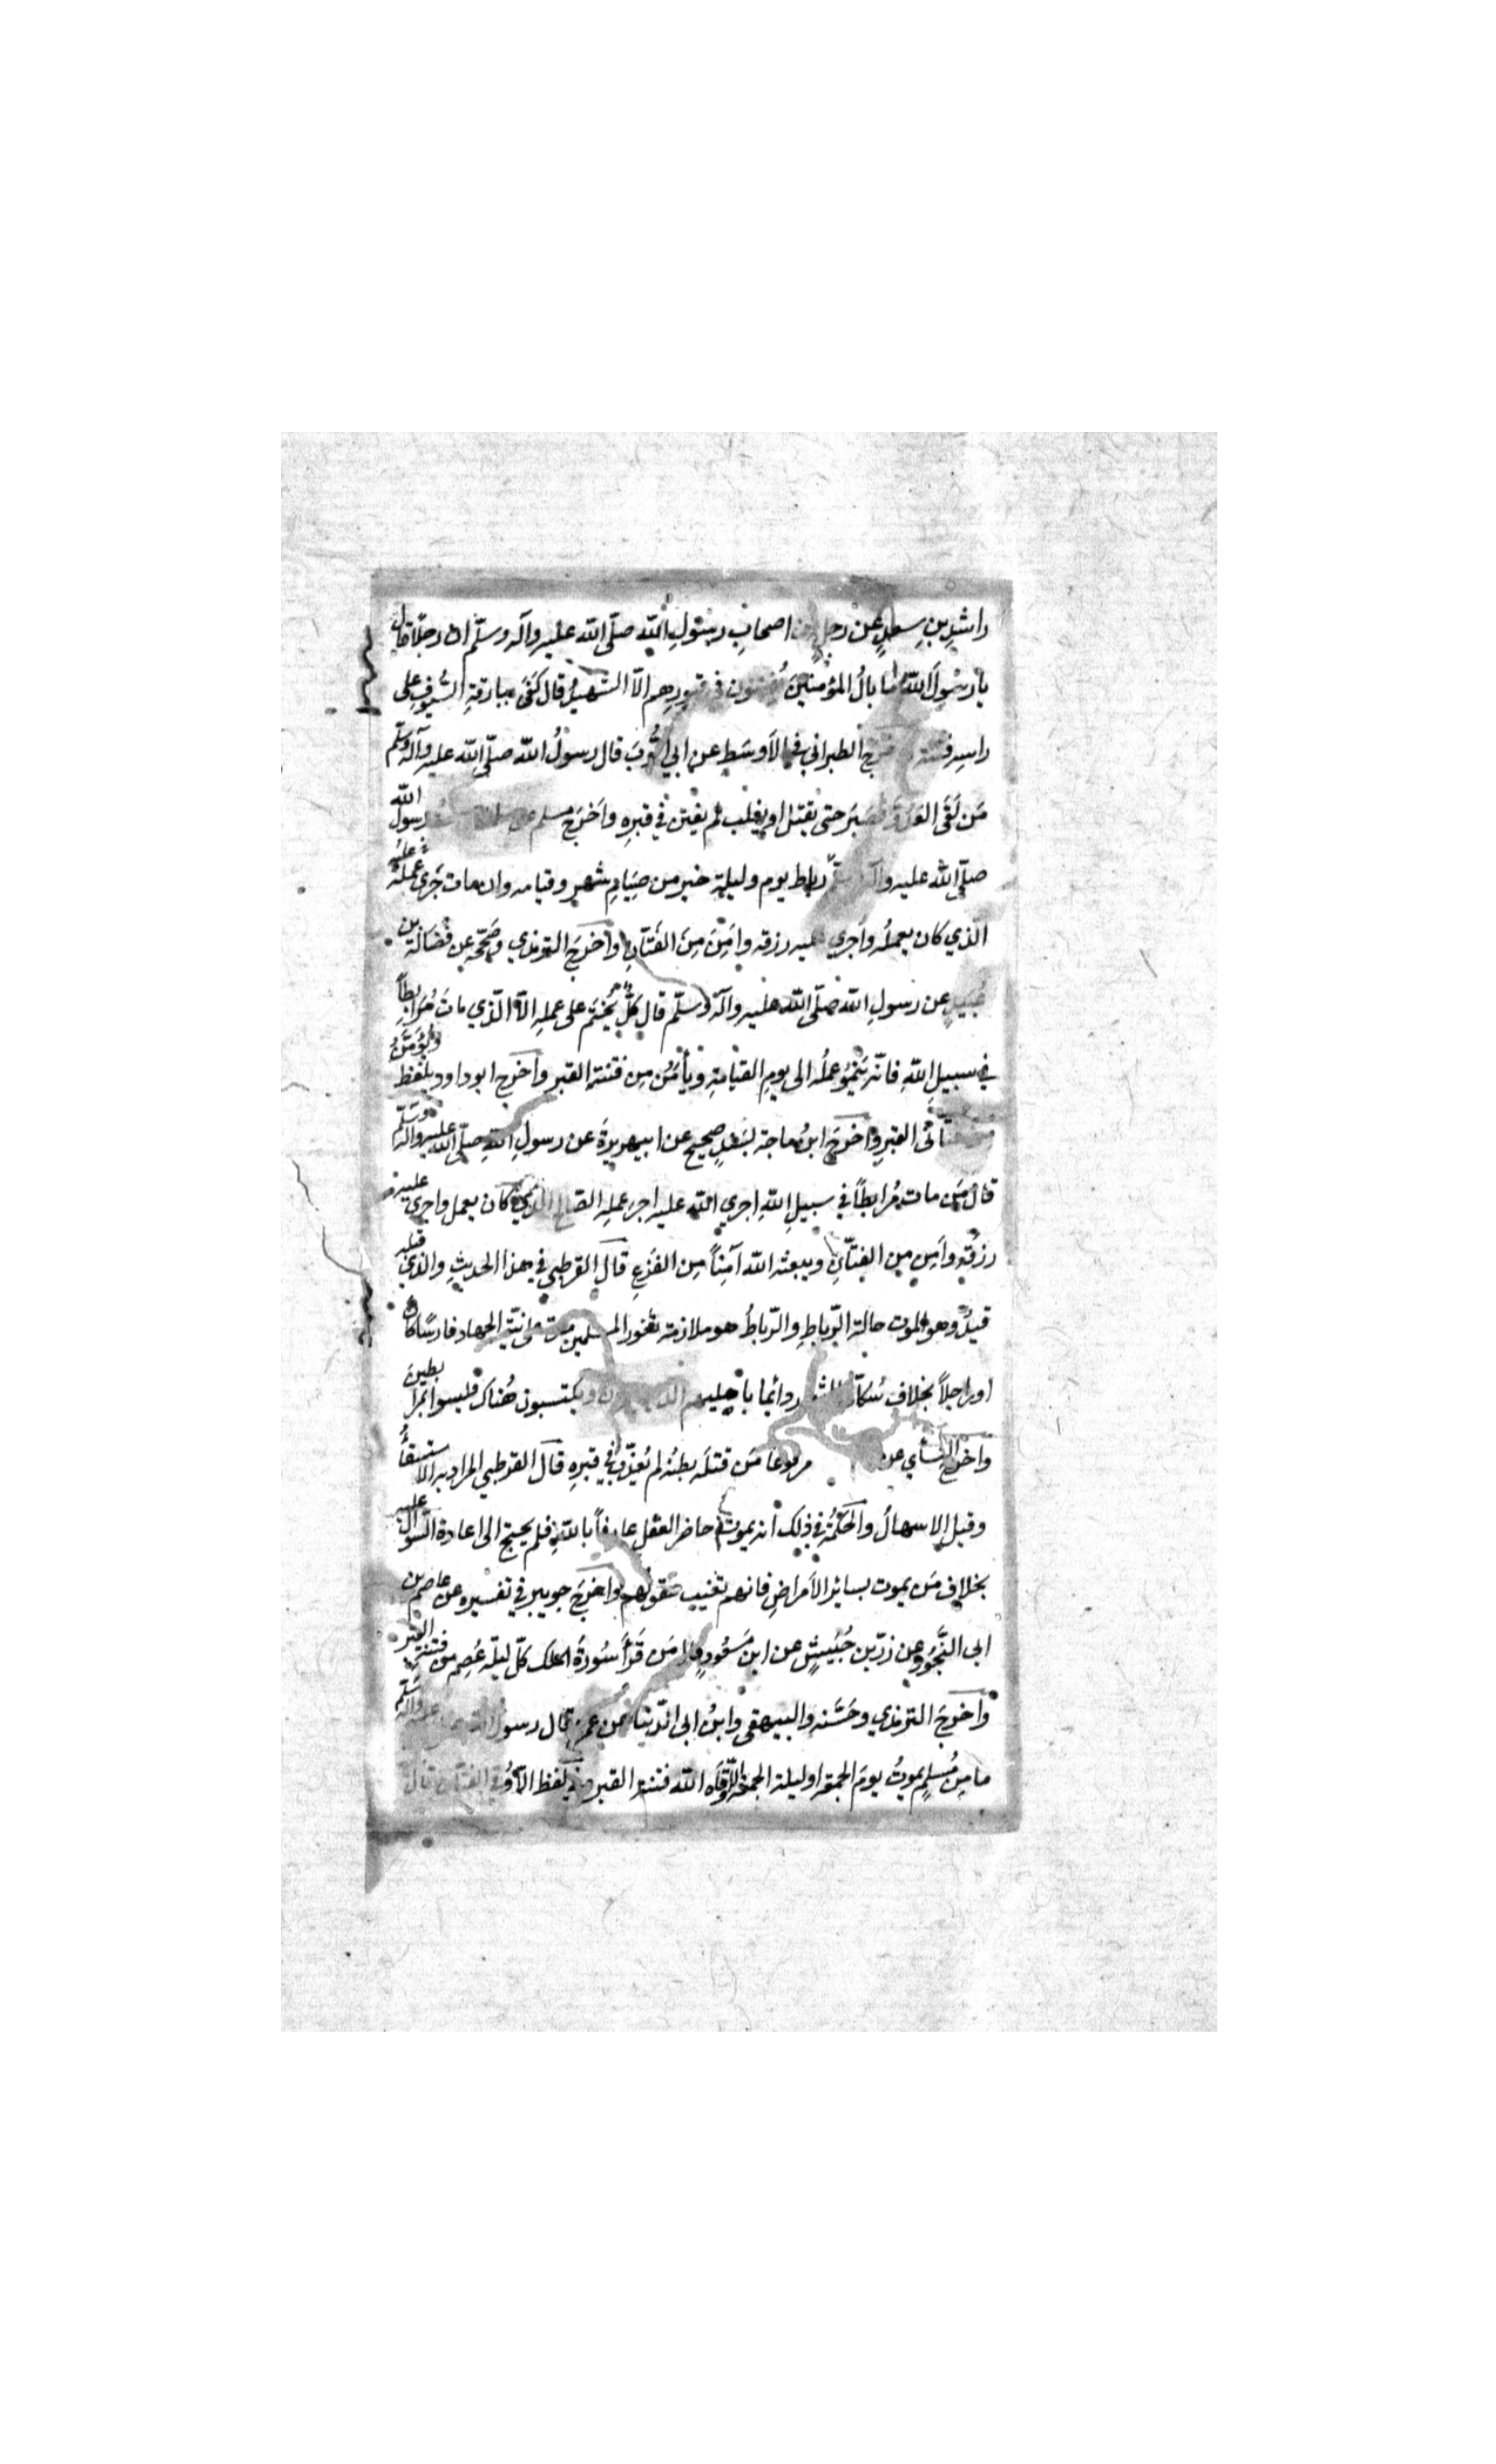 راشِدِ بنِ سعدٍ عن رجلٍ من اصحابِ رسولِ الله صلّى الله عليه وآله وسلّم ان رجلاً قال
يا رسولَ الله ما بالُ المؤمنينَ يُفتنون في قبورِهم الّا الشهيدُ قال كَفَى ببارقةِ السُّيوفِ على
راسِه فتنة الطبراني في الاَوسَط عن ابي ايُّوبَ قال رسولُ الله صلّى الله عليه وآله وسلّم
مَن لَقَى العَدُوَّ فصَبَرَ حتى يقتل او يغلب لم يفتن في قبرِه واَخرَج مسلم عن رسول الله
صلّى الله عليه وآله وسلّم رباط يوم وليلة خير من صِيَامِ شهرٍ وقيامه وان مات جَرَى عليه عملُه
الّذي كان يعملُه واَجري عليه رزقه واَمِنَ مِنَ الفَتَّانِ واَخرَجَ الترمذي وصَحّحه عن فَضَالَة بن
عُبَيدٍ عن رسولِ الله صلّى الله عليه وآله وسلّم قال كلٌّ يُختَم على عملِه الّا الّذي ماتَ مُرابِطاً
في سبيلِ اللهِ فانّه يَنمُو عملُه الى يومِ القيامةِ ويأمَنُ مِن فتنةِ القبر واَخرَج ابوداود بلفظ ويُؤمَنُ
من فتّاني القبرِ واَخرَجَ ابنُ ماجة بسَندٍ صحيح عن ابيهريرةَ عن رسولِ اللهِ صلّى الله عليه وآله وسلّم
قال مَن مات مُرابطاً في سبيلِ اللهِ اجري الله عليه اجرَ عملِه الصّالح الذي كان يعمل واجرى عليه
رزقُه واَمِن مِن الفتّانِ ويبعثه الله آمِناً مِن الفَزَعِ قال القرطبي في هذا الحديثِ والذي قبله
قيدٌ وهو الموت حالة الرّباطِ والرّباطُ هو ملازمة ثغور المسلمين مدة على نيّة الجهاد فارسًا كان
او راجلاً بخلاف سُكّان الثغور دائما باهليهم الذين يعمرون ويكتسبون هُناك فليسوا بمرابطين
واَخرج النسأي عن مرفوعا مَن قتلَه بطنُه لم يُعذَّب في قبرِه قال القرطبي المراد به الاستسقأُ
وقيل الاسهالُ والحكمةُ في ذلك انه يموت حاضر العقل عارفاً باللهِ فلم يحتج الى اعادة السؤال عليه
بخلافِ مَن يموت بسائرِ الاَمراضِ فانهم تغيب عقولُهم واَخرَجَ جويبر في تفسيره عن عاصم بن
ابي النَّجُودِ عن زرّ بن حُبَيشٍ عن ابن مَسعُودٍ قال مَن قَرَأ سُورةَ الملك كلّ ليلة عُصِم من فتنة القبر
واَخرَجَ الترمذي وحَسَّنه والبيهقي وابنُ ابي الدّنيا عن عمر قال رسول الله صلى الله عليه وآله وسلّم
ما مِن مُسلِمٍ يموتُ يومَ الجمعة او ليلة الجمعة الّا وقاه الله فتنة القبر وفي لفظ الّا وُقِيَ الفتّان قال